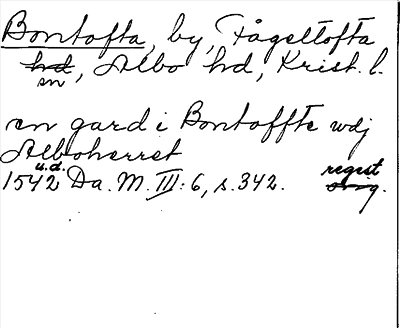 Bontofta, by, Fågeltofta
hd sn, Albo hd, Krist. l.
en gard i Bontoffte wdj
Alboherret
1542 u.d. Da. M. III: 6, s. 342. regist orig.